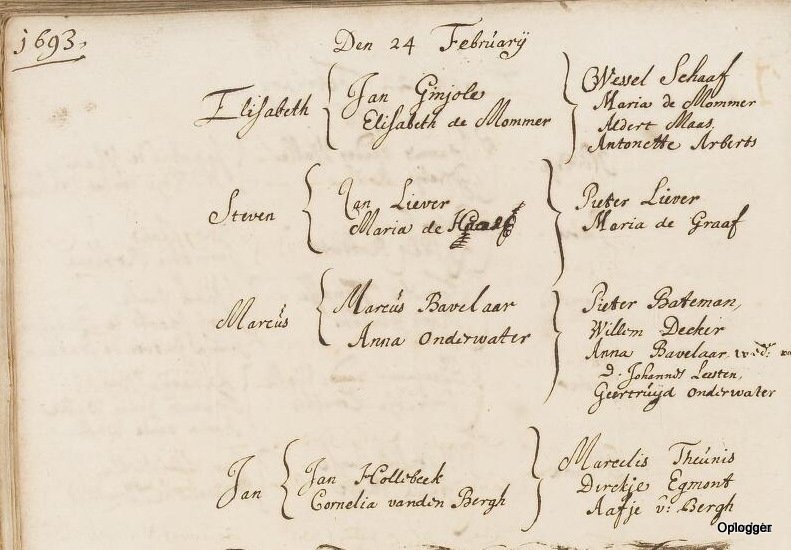 1693.
Den 24 Februarij
Elisabeth
Jan Ginjole
Elisabeth de Mommer
Wessel Schaaf
Maria de Mommer
Aldert Maas.
Antonette Arberts
Steven
Jan Liever
Maria de
Pieter Liever
Maria de Graaf
Marcus
Marcus Bavelaar
Anna Onderwater
Pieter Bateman,
Willem Decker
Anna Bavelaar wed:
D. Johannes Leesten,
Geertruyd Onderwater
Jan
Jan Hollebeek
Cornelia vanden Bergh
Marcelis Theunis
Dirckje Egmont
Aafje v: Bergh
Oplogger